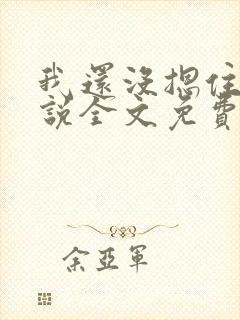 我還沒摁住
說全文免費
余亞軍